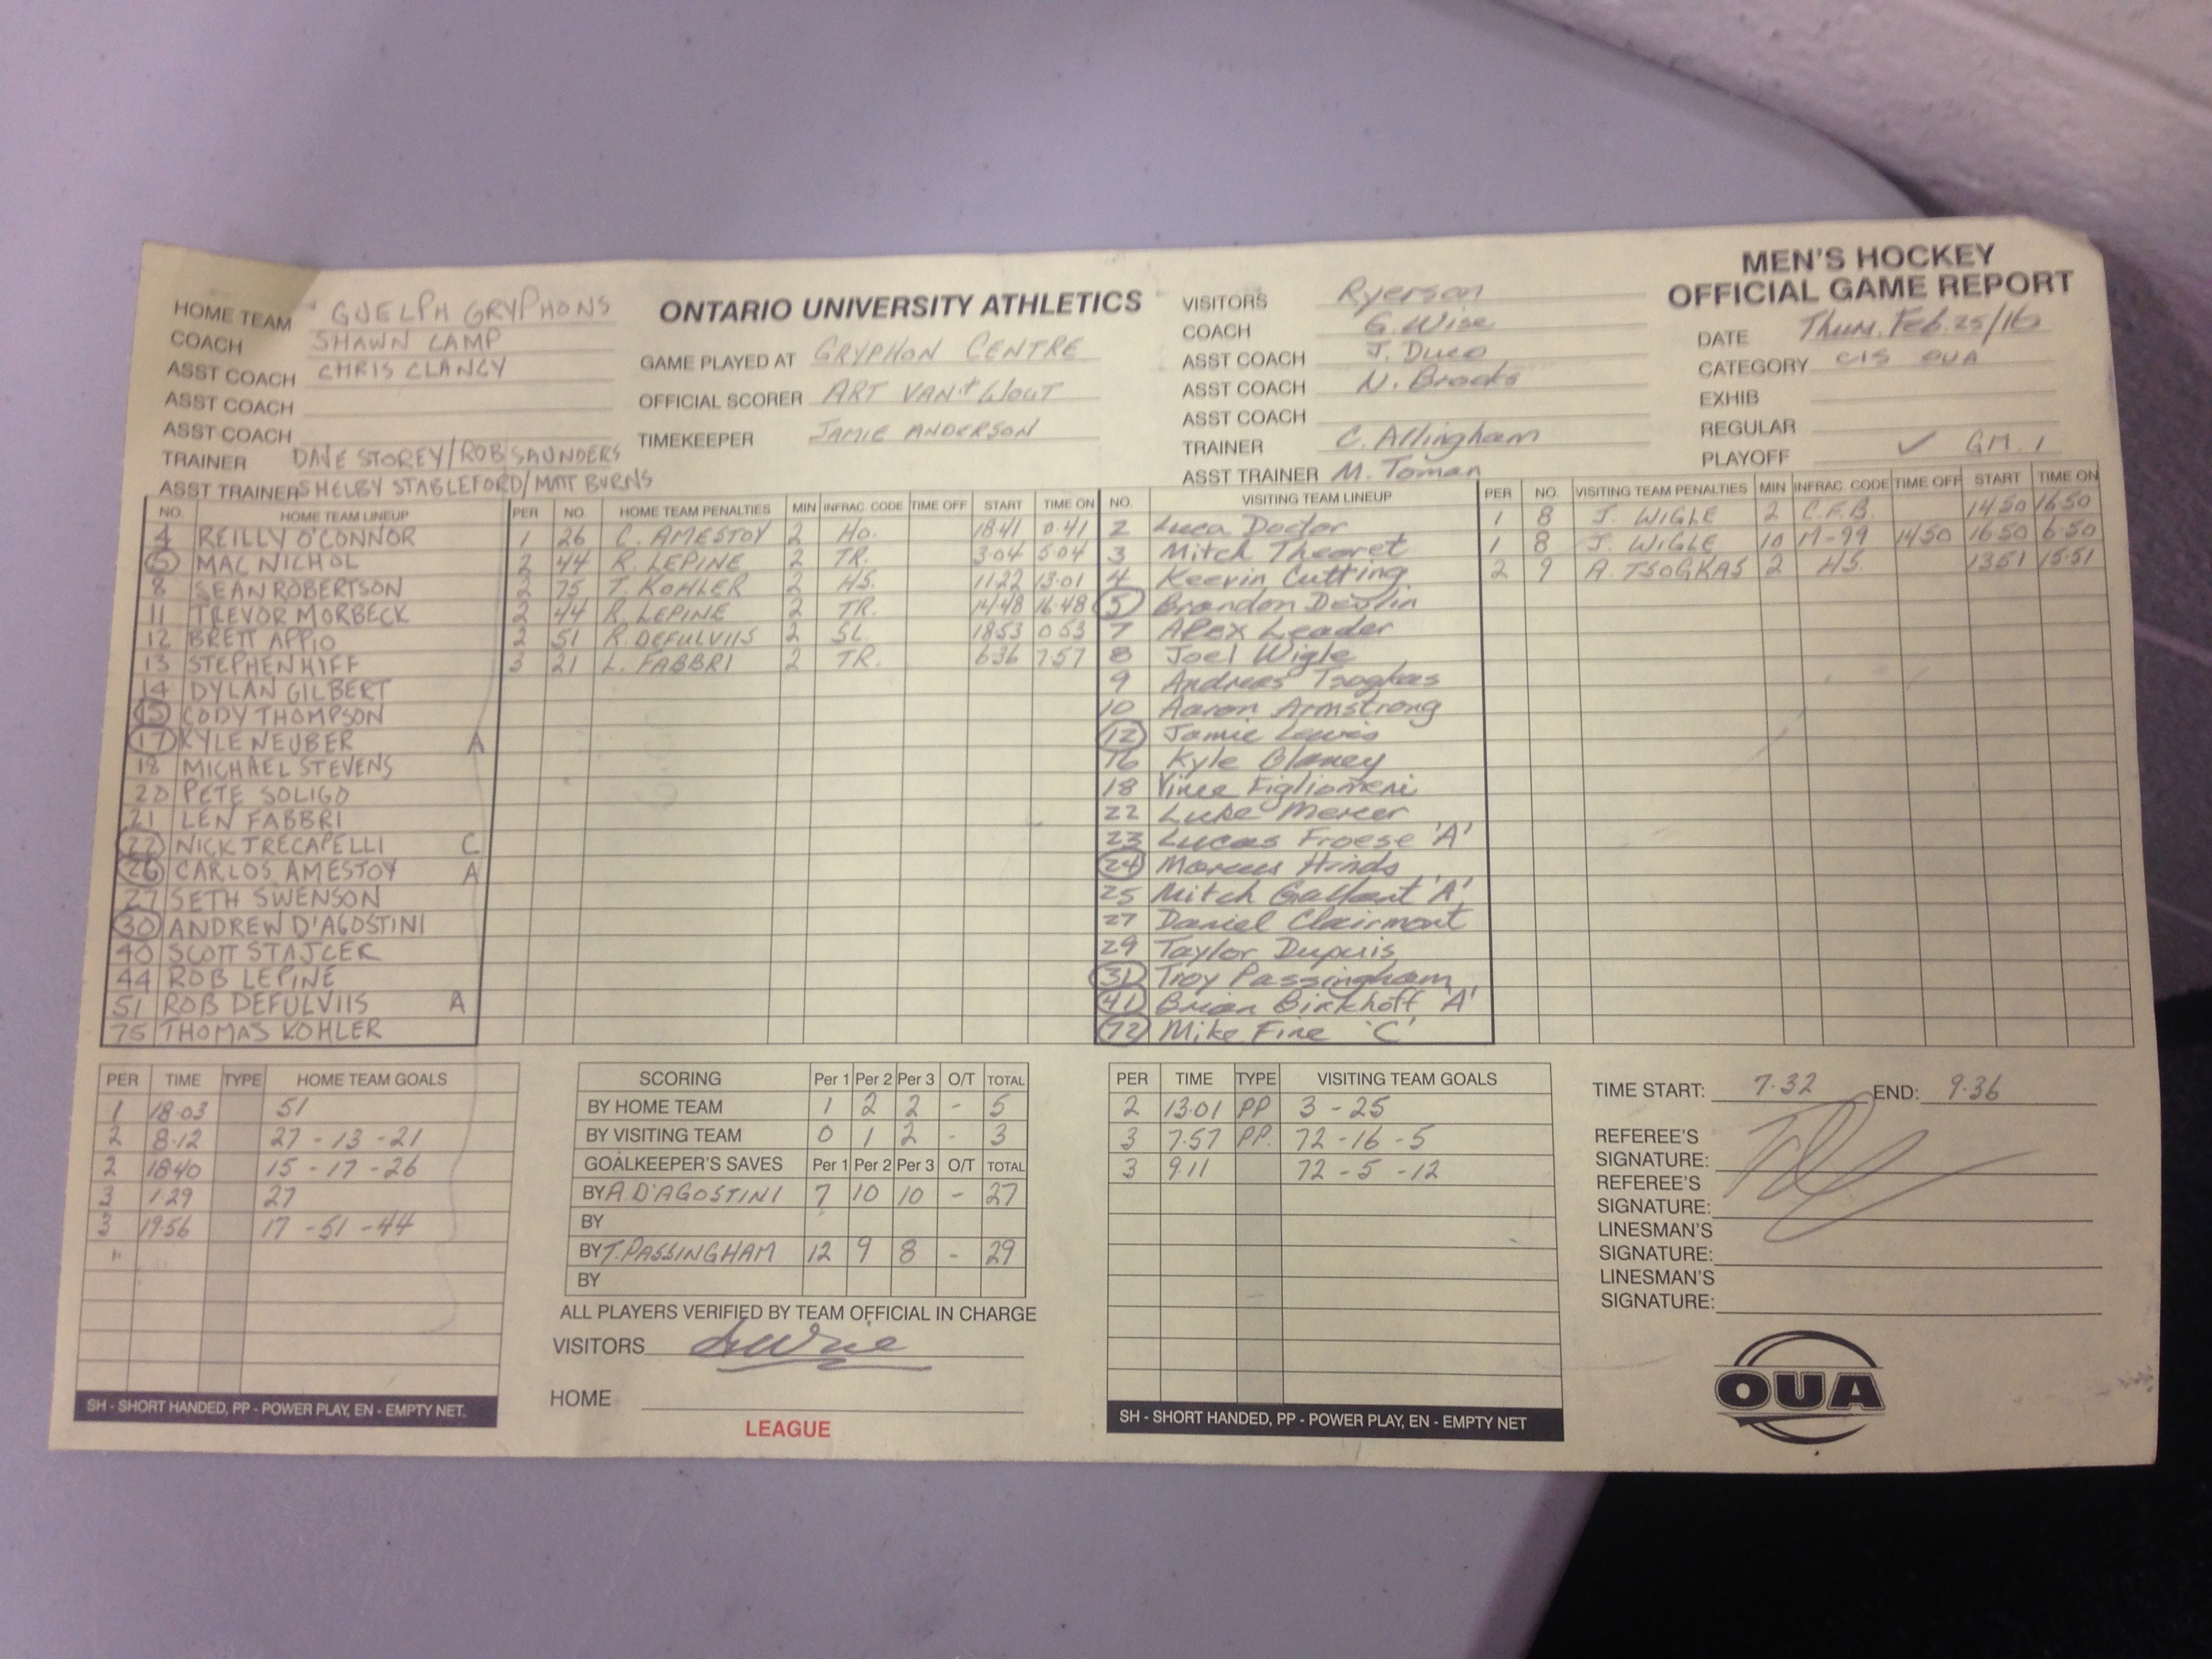 MEN'S HOCKEY
OFFICIAL GAME REPORT
ONTARIO UNIVERSITY ATHLETICS
HOME TEAM GUELPH GRYPHONS
COACH SHAWN CAMP
ASST COACH CHRIS CLANCY
ASST COACH
ASST COACH
TRAINER DAVE STOREY/ROB SAUNDERS
ASST TRAINER SHELBY STABLEFORD/MATT BURNS
GAME PLAYED AT GRYPHON CENTRE
OFFICIAL SCORER ART VAN'T WOUT
TIMEKEEPER JAMIE ANDERSON
VISITORS Ryerson
COACH G. Wise
ASST COACH J. Duco
ASST COACH N. Brooks
ASST COACH
TRAINER C. Allingham
ASST TRAINER M. Toman
DATE Thurs. Feb. 25/16
CATEGORY CIS OUA
EXHIB
REGULAR
PLAYOFF ✓ GM. 1
NO. HOME TEAM LINEUP
4 REILLY O'CONNOR
5 MAC NICHOL
8 SEAN ROBERTSON
11 TREVOR MORBECK
12 BRETT APPIO
13 STEPHEN HIFF
14 DYLAN GILBERT
15 CODY THOMPSON
17 KYLE NEUBER A
18 MICHAEL STEVENS
20 PETE SOLIGO
21 LEN FABBRI
22 NICK TRECAPELLI C
26 CARLOS AMESTOY A
27 SETH SWENSON
30 ANDREW D'AGOSTINI
40 SCOTT STAJCER
44 ROB LEPINE
51 ROB DEFULVIIS A
75 THOMAS KOHLER
PER NO. HOME TEAM PENALTIES MIN INFRAC. CODE TIME OFF START TIME ON
1 26 C. AMESTOY 2 HO. 18 41 0.41
2 44 R. LEPINE 2 TR. 3.04 5.04
2 75 T. KOHLER 2 HS. 11 22 13.01
2 44 R. LEPINE 2 TR 14.48 16.48
2 51 R. DEFULVIIS 2 SL. 18 53 0 53
3 21 L. FABBRI 2 TR. 6 36 7 57
NO. VISITING TEAM LINEUP
2 Luca Doctor
3 Mitch Theoret
4 Keevin Cutting
5 Brandon Devlin
7 Alex Leader
8 Joel Wigle
9 Andreas Tsogkas
10 Aaron Armstrong
12 Jamie Lewis
16 Kyle Blaney
18 Vince Figliomeni
22 Luke Mercer
23 Lucas Froese 'A'
24 Marcus Hinds
25 Mitch Gallant 'A'
27 Daniel Clairmont
29 Taylor Dupuis
31 Troy Passingham
41 Brian Birkhoff 'A'
72 Mike Fine 'C'
PER NO. VISITING TEAM PENALTIES MIN INFRAC. CODE TIME OFF START TIME ON
1 8 J. WIGLE 2 C.F.B. 14 50 16.50
1 8 J. WIGLE 10 M-99 14 50 16 50 6.50
2 9 A. TSOGKAS 2 HS. 13 51 15.51
PER TIME TYPE HOME TEAM GOALS
1 18.03 51
2 8.12 27 - 13 - 21
2 18.40 15 - 17 - 26
3 1.29 27
3 19.56 17 - 51 - 44
SH - SHORT HANDED, PP - POWER PLAY, EN - EMPTY NET.
SCORING Per 1 Per 2 Per 3 O/T TOTAL
BY HOME TEAM 1 2 2 - 5
BY VISITING TEAM 0 1 2 - 3
GOALKEEPER'S SAVES Per 1 Per 2 Per 3 O/T TOTAL
BY A D'AGOSTINI 7 10 10 - 27
BY
BY T. PASSINGHAM 12 9 8 - 29
BY
ALL PLAYERS VERIFIED BY TEAM OFFICIAL IN CHARGE
VISITORS
HOME
LEAGUE
PER TIME TYPE VISITING TEAM GOALS
2 13.01 PP 3 - 25
3 7.57 PP. 72 - 16 - 5
3 9.11 72 - 5 - 12
SH - SHORT HANDED, PP - POWER PLAY, EN - EMPTY NET
TIME START: 7.32 END: 9.36
REFEREE'S
SIGNATURE:
REFEREE'S
SIGNATURE:
LINESMAN'S
SIGNATURE:
LINESMAN'S
SIGNATURE:
OUA